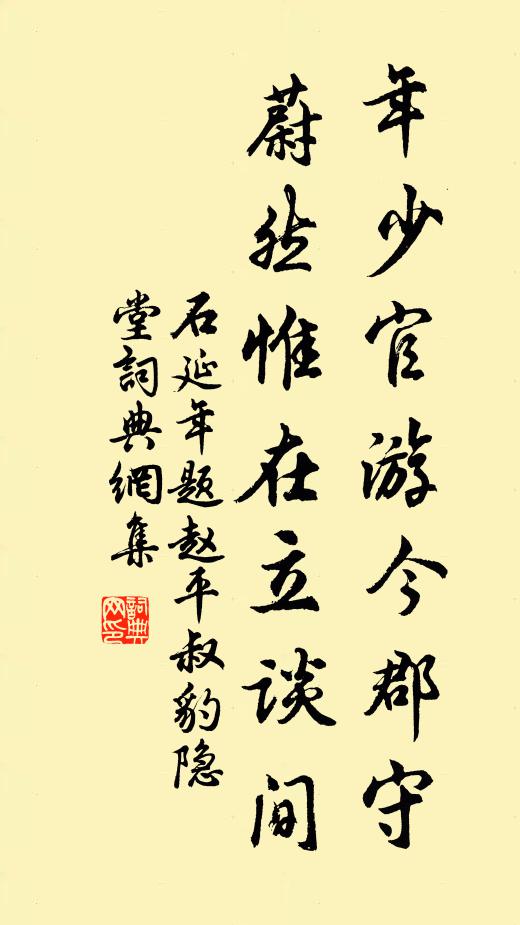 年少官游今郡守
蔚然惟在立談间
石延年题赵平叔豹隐
堂詞典網集
詞典
网印